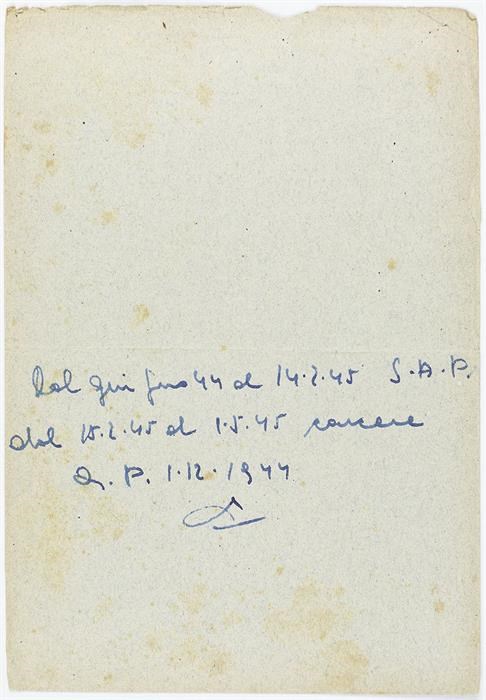 Dal giugno 44 al 14.2.45 S.A.P.
dal 15.2.45 al 1.5.45 carcere
P. 1.12.1944